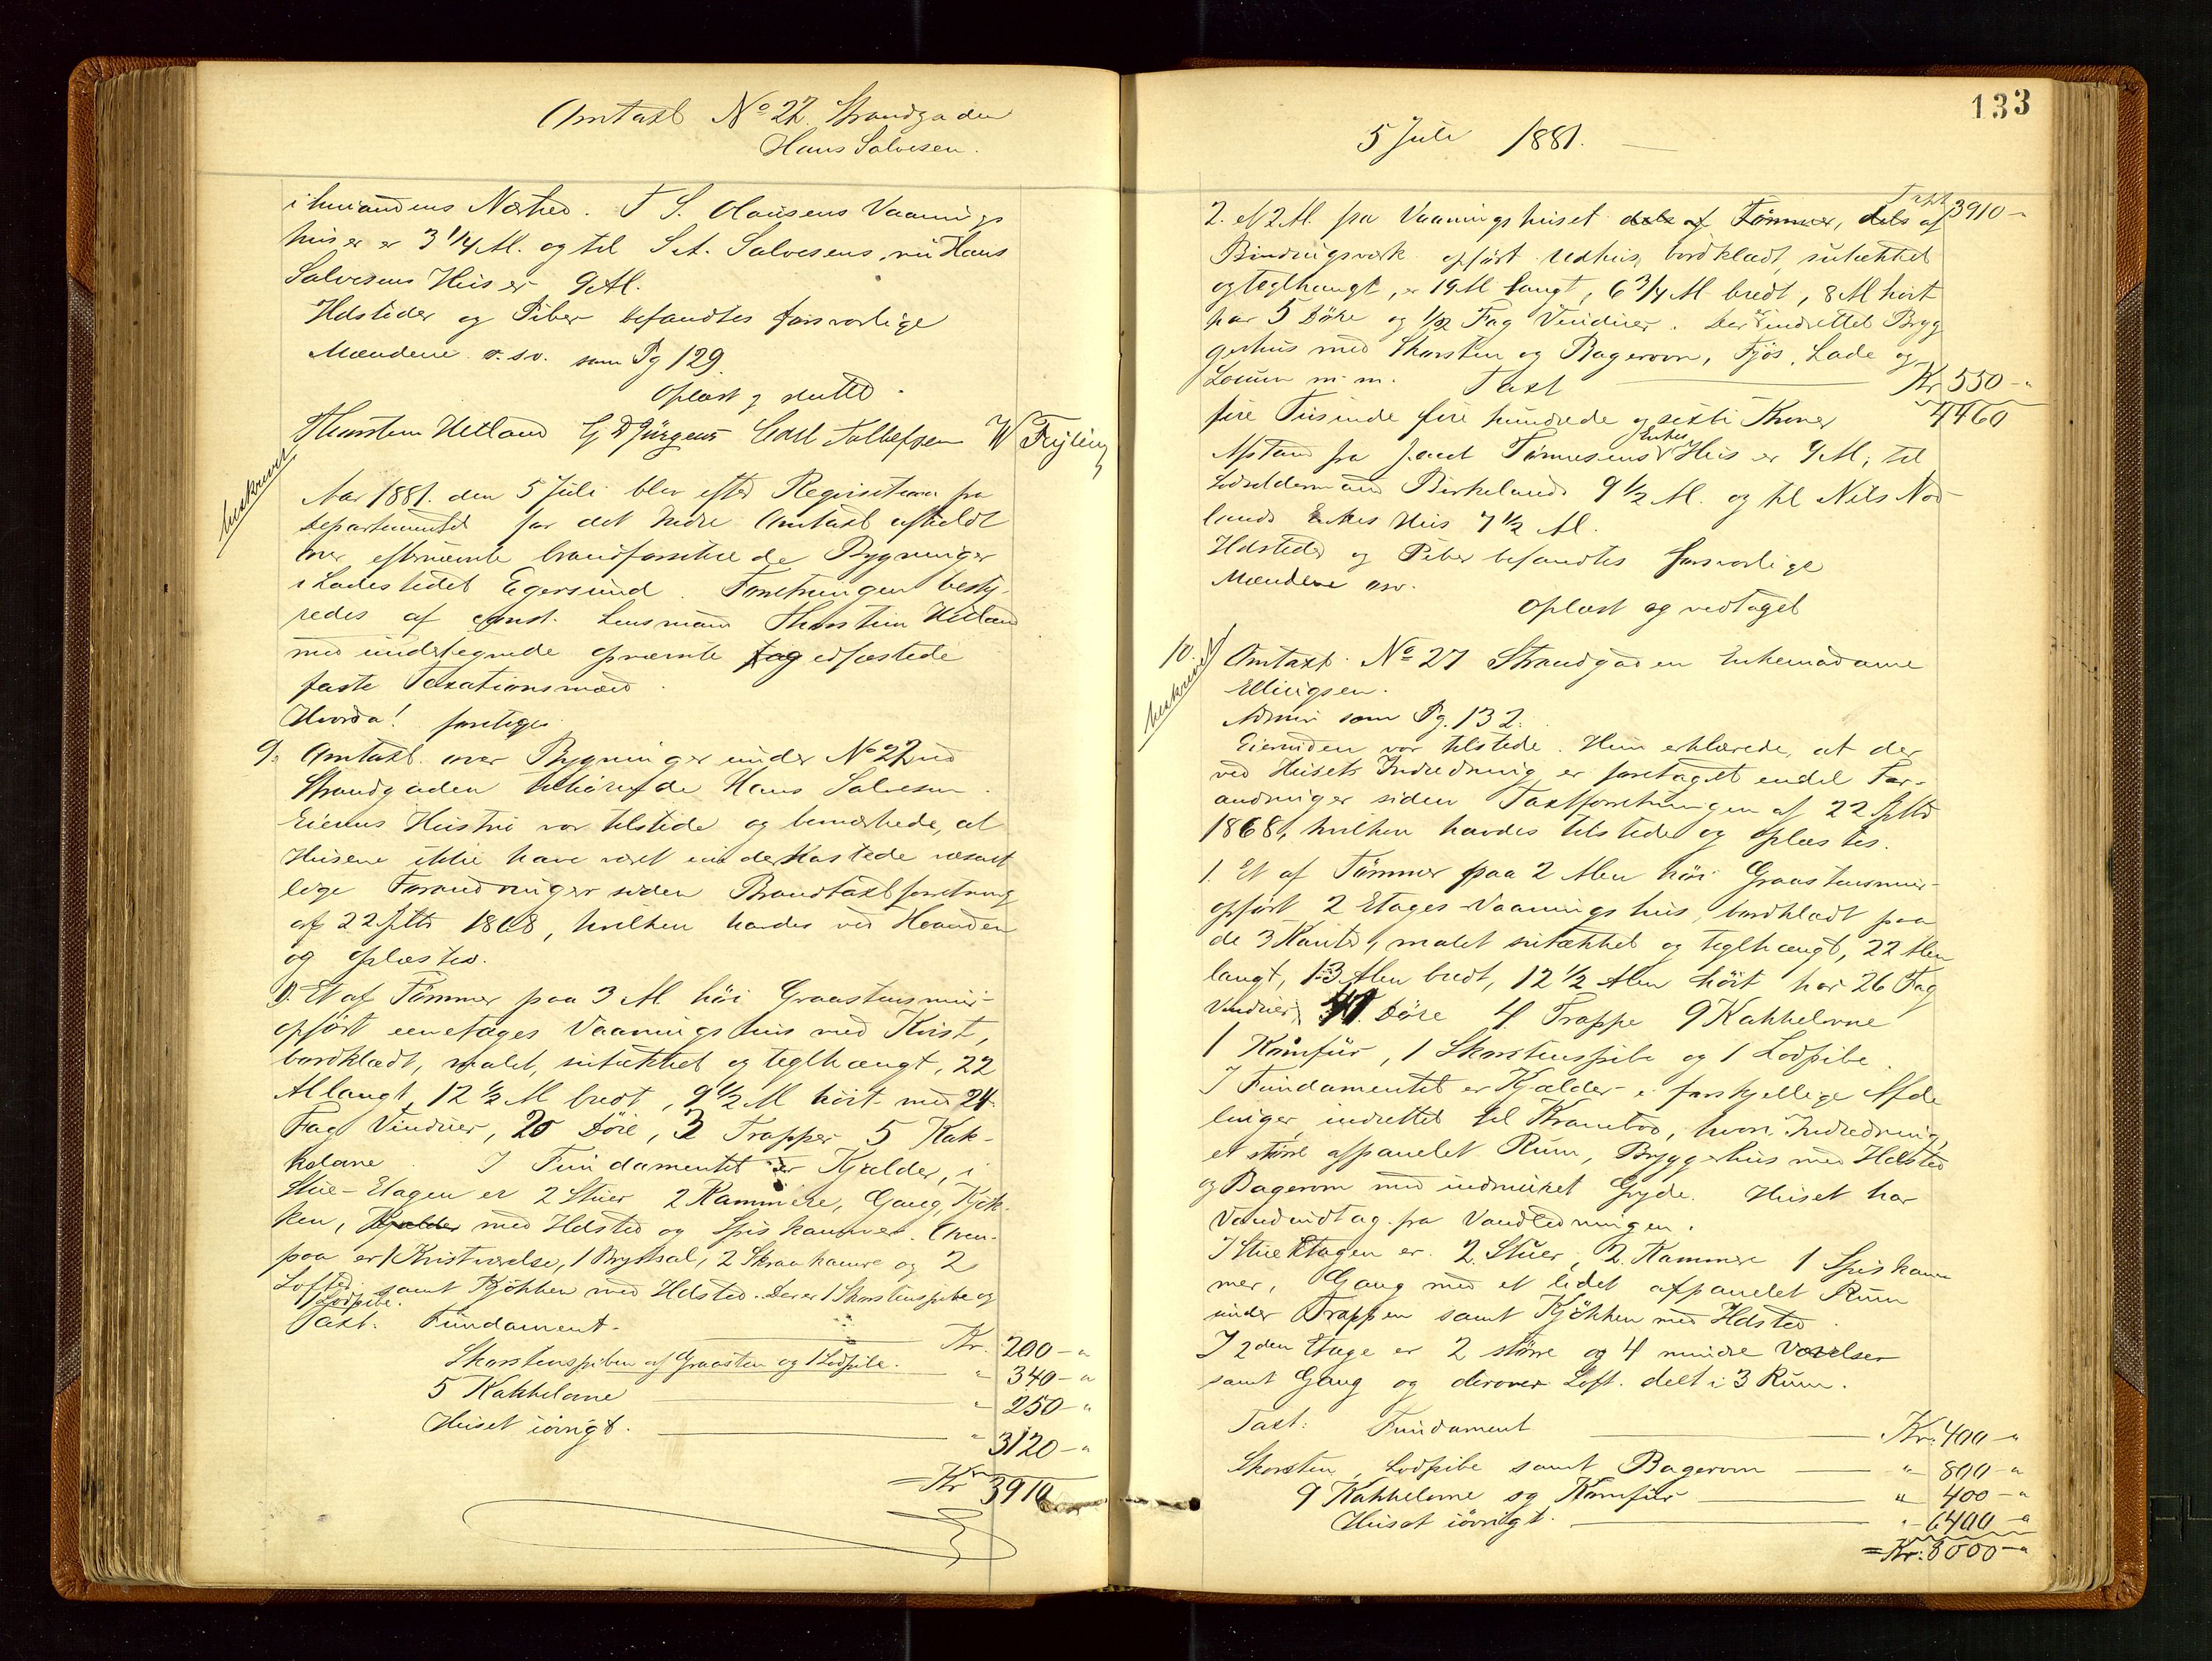 Omtaxt No 22. Strandgaden
Hans Salvesen.
i hinandens Nærhed. T S. Olausens Vaanings
huser er 3 1/4 Al. og til S. A. Salvesens, nu Hans
Salvesens Huser 9 Al.
Ildsteder og Piber befandtes forsvarlige
Mændene o.s.v. som Pg 129.
Oplæst og sluttet.
Thorsten Hetland G D Jürgens Carl Tollefsen W Feyling
beskrevet
Aar 1881. den 5 Juli blev efter Requisition fra
Departementet for det Indre Omtaxt afholdt
over efternævnte brandforsikrede Bygninger
i Ladestedet Egersund. Forretningen besty-
redes af const. Lensmand Thorstein Hetland
med undertegnede opnævnte og edfæstede
faste Taxationsmænd.
Hvorda! foretoges
9. Omtaxt over Bygninger under No 22 ved
Strandgaden tilhørende Hans Salvesen.
Eierens Hustru var tilstede og bemærkede, at
Husene ikke have været underkastede væsent
lige Forandringer siden Brandtaxtforretning
af 22 Septbr 1868, hvilken havdes ved Haanden
og oplæstes.
1. Et af Tömmer paa 3 Al höi Graastensmur
opfört eenetages Vaaningshus med Kvist,
bordklædt, malet, sutækket og teglhængt, 22
Al langt, 12 1/2 Al bredt, 9 1/2 Al höit med 24
Fag Vinduer, 20 Döre, 3 Trapper 5 Kak-
kelovne. I Fundamentet er Kjælder, i
Stue-Etagen er 2 Stuer 2 Kammere, Gang, Kjök-
ken, Kjælder med Ildsted og Spiskammer. Oven-
paa er 1 Kvistværelse, 1 Brystsal, 2 Skraakamre og 2
Lofter samt Kjökken med Ildsted. Der er 1 Skorstenspibe og
1 Lodpibe.
Taxt. Fundament. Kr. 200 - "
Skorstenspiben af Graasten og 1 Lodpibe. " 340 - "
5 Kakkelovne " 250 - "
Huset iövrigt. " 3120 - "
= Kr 3910
133
5 Juli 1881.
Tapt 3910 -
2. et 2 Al. fra Vaaningshuset dels af Tömmer, dels af
Bindingsværk opfört Udhus, bordklædt, sutækket
og teglhængt, er 19 Al langt, 6 3/4 Al bredt, 8 Al höit
har 5 Döre og 1/2 Fag Vinduer. Der er indrettet Bryg
gerhus med Skorsten og Bagerovn, Fjös, Lade og
Locum m. m. Taxt Kr 550 - "
fire Tusinde fire hundrede og sexti Kroner 4460
Afstand fra Jacob Tönnesens Enkes Hus er 9 Al, til
Lodsoldermand Birkelands 9 1/2 Al. og til Nils Nod
lands Enkes Hus 7 1/2 Al.
Ildsteder og Piber befandtes forsvarlige
Mændene osv.
Oplæst og vedtaget
10.
beskrevet
Omtaxt No 27 Strandgaden Enkemadame
Ellingsen.
Admin som Pg. 132.
Eierinden var tilstede. Hun erklærede, at der
ved Husets Indredning er foretaget endel For-
andringer siden Taxtforretningen af 22 Septbr
1868, hvilken havdes tilstede og oplæstes.
1. Et af Tömmer paa 2 Alen höi Graastensmur
opfört 2 Etages Vaaningshus, bordklædt paa
de 3 Kanter, malet sutækket og teglhængt, 22 Alen
langt, 13 Alen bredt, 12 1/2 Alen höit har 26 Fag
Vinduer, Döre 4 Trappe 9 Kakkelovne
1 Komfur, 1 Skorstenspibe og 1 Lodpibe.
I Fundamentet er Kjælder i forskjellige Afde
linger, indrettet til Krambod, hvori Indredning,
et större afpanelet Rum, Bryggerhus med Ildsted
og Bagerovn med indmuret Gryde. Huset har
Vandindtag fra Vandledningen.
I Stue Etagen er 2 Stuer, 2 Kammere 1 Spiskam
mer, Gang med et lidet afpanelet Rum
under Trappen samt Kjökken med Ildsted.
I 2den Etage er 2 större og 4 mindre Værelser
samt Gang og derover Loft delt i 3 Rum.
Taxt: Fundament Kr. 400 - "
Skorsten, Lodpibe samt Bagerovn " 800 - "
9 Kakkelovne og Komfur " 400 - "
Huset iövrigt. " 6400 - "
= Kr. 8000 - "